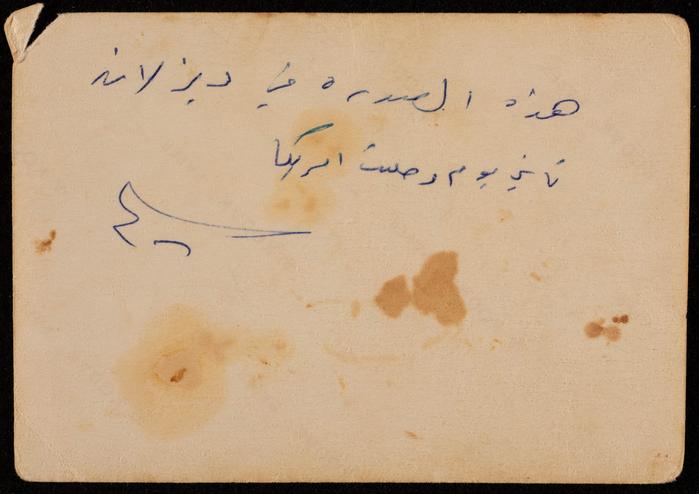 هذه الصوره في ديزلاند
ثاني يوم وصلت امريكا